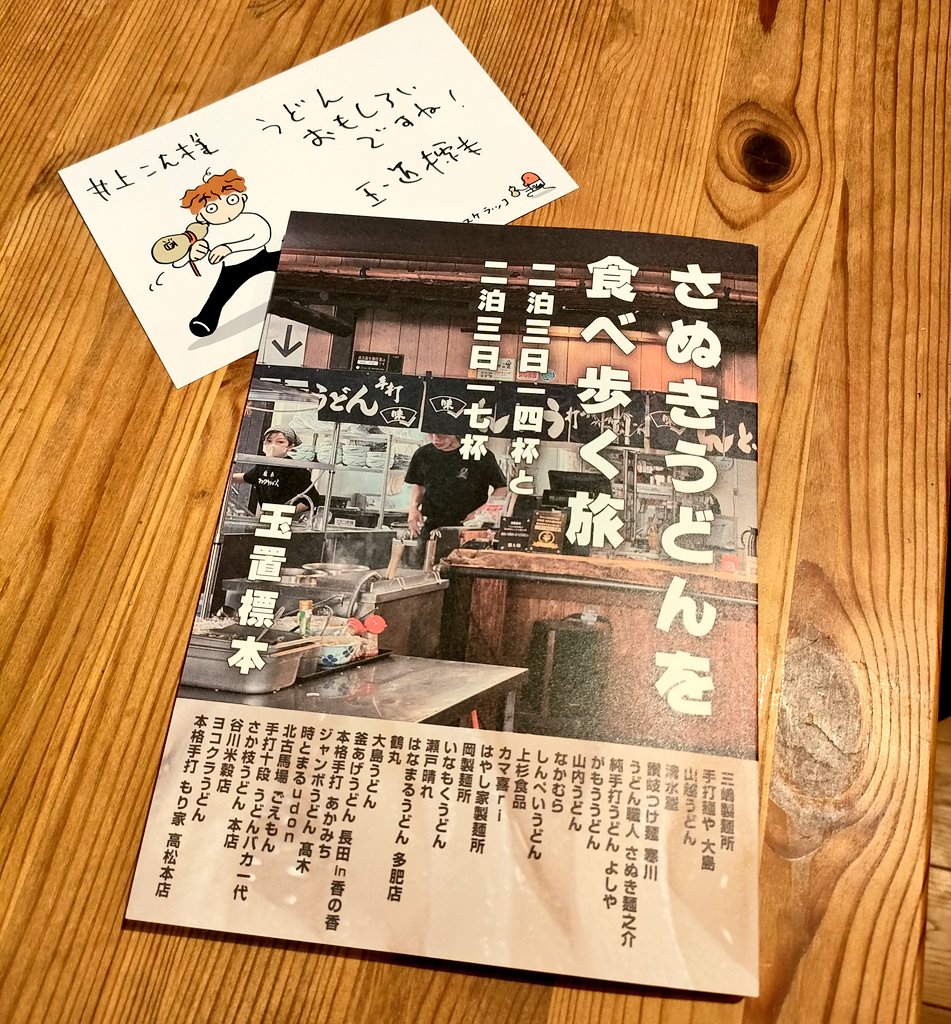 井上こん様
うどん
おもしろい
ですね！
玉置標本
スケラッコ
さぬきうどんを
食べ歩く旅
二泊三日一四杯と
二泊三日一七杯
玉置標本
うどん
手打
味
味
う
三嶋製麺所
手打麺や 大島
山越うどん
清水屋
讃岐つけ麺 寒川
うどん職人 さぬき麺之介
純手打うどん よしや
がもううどん
山内うどん
なかむら
しんぺいうどん
上杉食品
カマ喜ri
はやし家製麺所
岡製麺所
いなもくうどん
瀬戸晴れ
はなまるうどん 多肥店
鶴丸
大島うどん
釜あげうどん 長田 in 香の香
本格手打 あかみち
ジャンボうどん 髙木
時とまるudon
北古馬場 ごえもん
手打十段 うどんバカ一代
さか枝うどん 本店
谷川米穀店
ヨコクラうどん
本格手打 もり家 高松本店